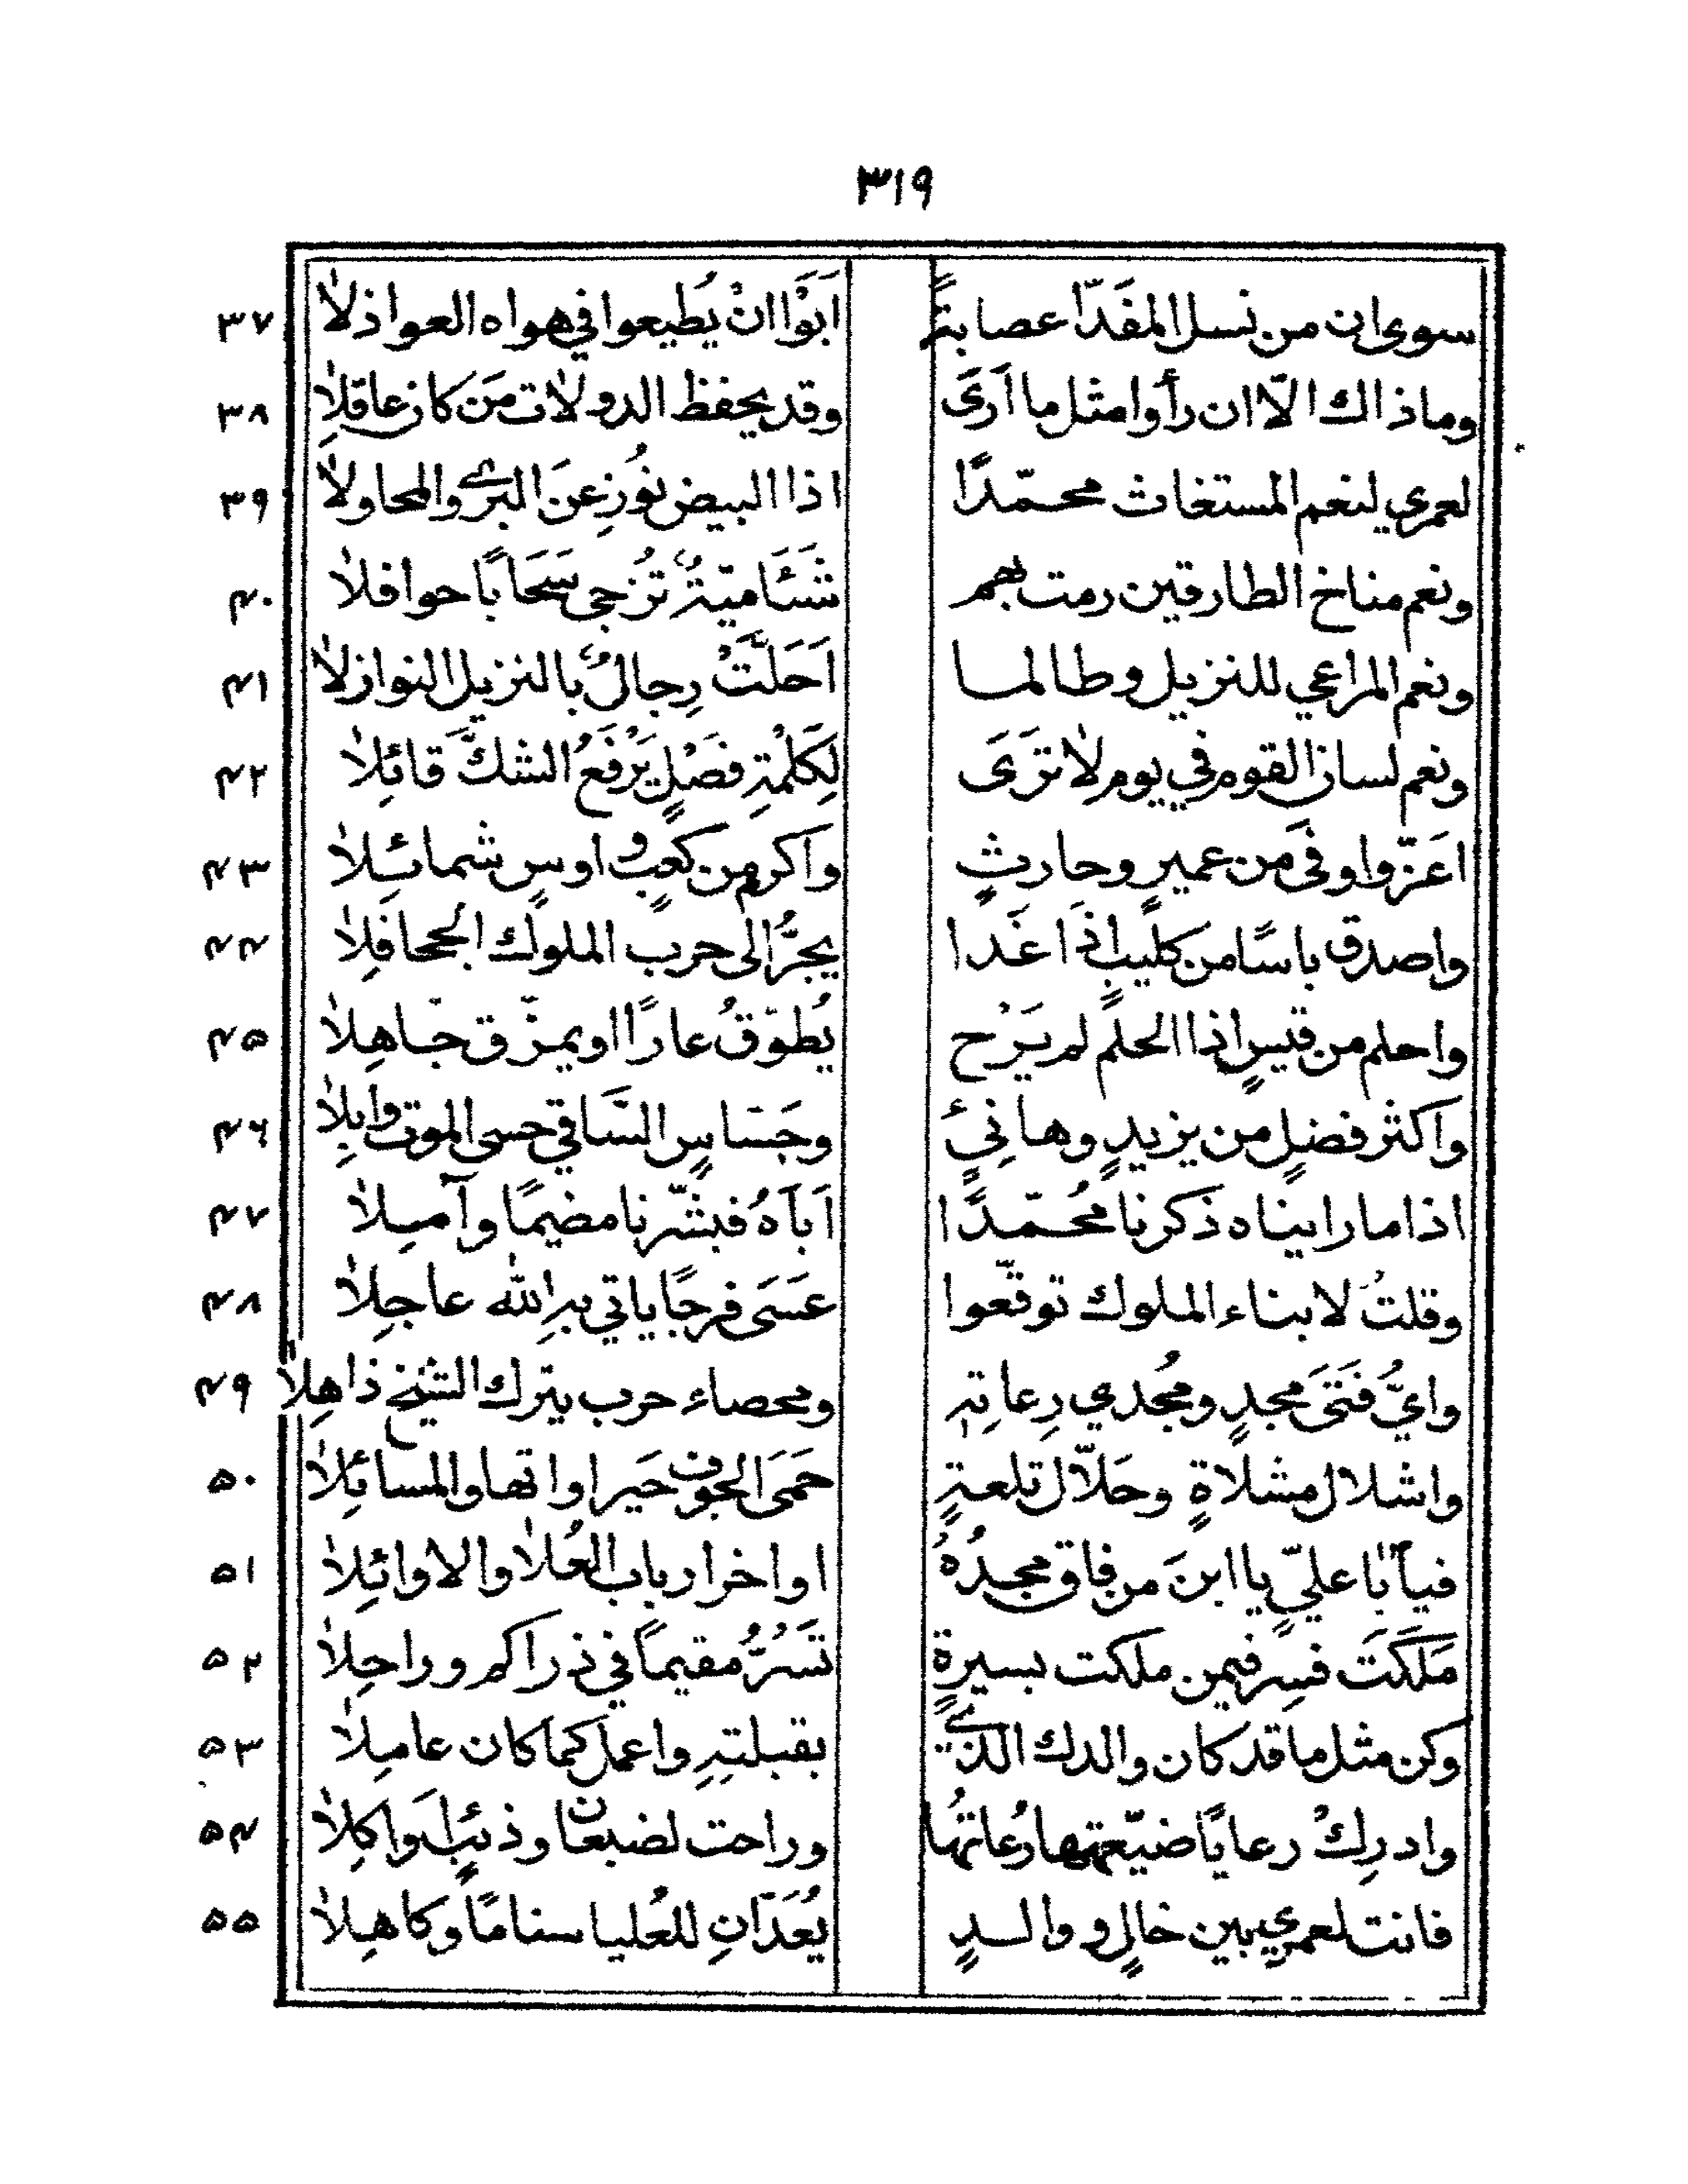 ٣١٩
سوى ان من نسل المفَدّا عصابةً اَبَوْا انْ يُطيعوا في هواه العواذلا ٣٧
وما ذاك الّا ان رأَوا مثل ما اَرَى وقد يحفظ الدولات مَن كان عاقِلا ٣٨
لعمري لنعم المستغاث محمّدًا اذا البيض نُوزِعنَ البُرى والمحاولا ٣٩
ونعم مناخ الطارقين رمت بهم شَئَاميّةٌ تُزجي سَحَابًا حوافلا ٤٠
ونعم المراعي للنزيل وطالما اَحَلَّتْ رِجالٌ بالنزيل النوازلا ٤١
ونعم لسان القوم في يوم لا تَرَى لِكَلْمَةِ فَصْلٍ يَرْفَعُ الشكَّ قائِلا ٤٢
اعَزّ واوفَى من عميرٍ وحارثٍ واكرم من كعبٍ واوسٍ شمائِلا ٤٣
واصدق باسًا من كليبٍ اذَا غَدا يجُرُّ الى حرب الملوك الجحافِلا ٤٤
واحلم من قيسٍ اذا الحلم لم يَرُح يُطوّقُ عارًا او يمزّق جاهِلا ٤٥
واكثر فضلٍ من يزيدٍ وهانِئٍ وجَسّاسٍ السَّاقي حسى الموت وابِلا ٤٦
اذا ما راىناه ذكرنا مُحمّدًا اَباَهُ فبشّرنا مضيمًا وآمِلا ٤٧
وقلتُ لابناء الملوك توقّعوا عَسَى فرجًا ياتي بهِ الله عاجِلا ٤٨
وايُّ فَتَى مجدٍ ومُجدي رِعاتِهِ ومحصاء حرب يترك الشيخ ذاهِلا ٤٩
واشلال مشلاةٍ وحَلاّل تلعةٍ حَمَى الجوف حَيراواتها والمسائِلا ٥٠
فيا اَبَا عليٍّ يا ابنَ من فاق مجدُهُ اواخر ارباب العُلا والاوائِلا ٥١
مَلَكَتَ فسِر فيمن ملكت بسيرةٍ تَسُرُّ مقيماً في ذراكم وراحِلا ٥٢
وكن مثل ما قد كان والدك الذي بقبلتِهِ واعمل كما كان عامِلا ٥٣
وادرِكْ رعايًا ضيّعتها رُعاتُها وراحت لضبعان وذئبٍ اَواكِلا ٥٤
فانت لعمري بين خالٍ ووالدٍ يُعَدّانِ للعُليا سنامًا وكاهِلا ٥٥